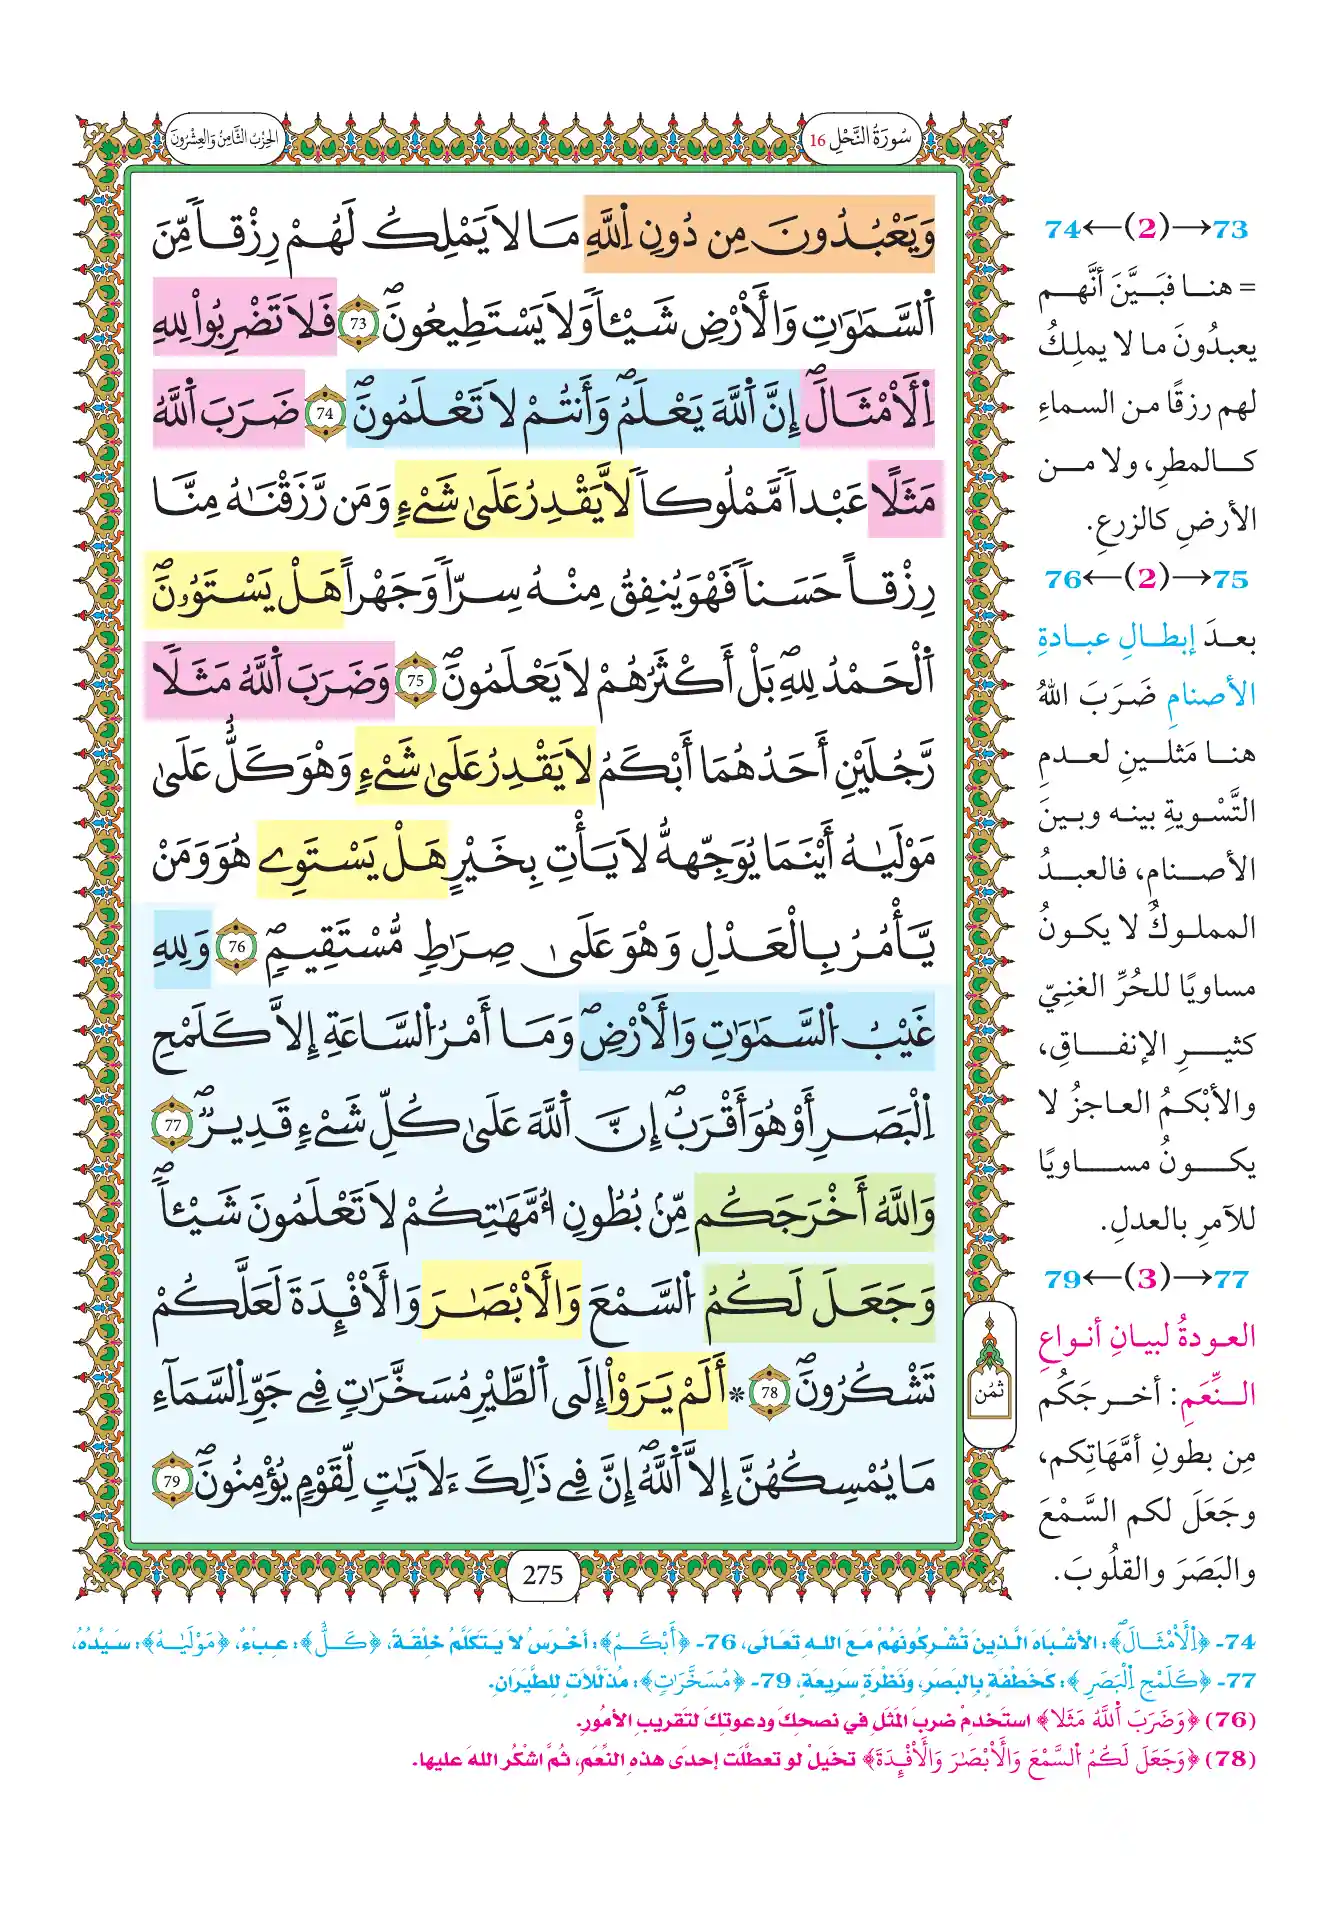 سُورَةُ النَّحْلِ 16
الحِزْبُ الثَّامِنُ وَالعِشْرُونَ
وَيَعْبُدُونَ مِن دُونِ اِ۬للَّهِ مَا لَا يَمْلِكُ لَهُمْ رِزْقاً مِّنَ
اَ۬لسَّمَٰوَٰتِ وَالَارْضِ شَيْـٔاً وَلَا يَسْتَطِيعُونَۖ 73 فَلَا تَضْرِبُواْ لِلهِ
اِ۬لَامْثَالَۖ إِنَّ اَ۬للَّهَ يَعْلَمُۖ وَأَنتُمْ لَا تَعْلَمُونَۖ 74 ضَرَبَ اَ۬للَّهُ
مَثَلًا عَبْداً مَّمْلُوكاً لَّا يَقْدِرُ عَلَىٰ شَےْءٖ وَمَن رَّزَقْنَٰهُ مِنَّا
رِزْقاً حَسَناً فَهْوَ يُنفِقُ مِنْهُ سِرّاً وَجَهْراً هَلْ يَسْتَوُۥنَۖ
اَ۬لْحَمْدُ لِلهِۖ بَلْ أَكْثَرُهُمْ لَا يَعْلَمُونَۖ 75 وَضَرَبَ اَ۬للَّهُ مَثَلًا
رَّجُلَيْنِ أَحَدُهُمَا أَبْكَمُ لَا يَقْدِرُ عَلَىٰ شَےْءٖ وَهْوَ كَلٌّ عَلَىٰ
مَوْلَيٰهُ أَيْنَمَا يُوَجِّههُّ لَا يَأْتِ بِخَيْرٍ هَلْ يَسْتَوِے هُوَ وَمَنْ
يَّأْمُرُ بِالْعَدْلِ وَهْوَ عَلَىٰ صِرَٰطٖ مُّسْتَقِيمٖۖ 76 وَلِلهِ
غَيْبُ اُ۬لسَّمَٰوَٰتِ وَالَارْضِۖ وَمَا أَمْرُ اُ۬لسَّاعَةِ إِلَّا كَلَمْحِ
اِ۬لْبَصَرِ أَوْ هُوَ أَقْرَبُۖ إِنَّ اَ۬للَّهَ عَلَىٰ كُلِّ شَےْءٖ قَدِيرٞۖ 77
وَاللَّهُ أَخْرَجَكُم مِّنۢ بُطُونِ أُمَّهَٰتِكُمْ لَا تَعْلَمُونَ شَيْـٔاًۖ
وَجَعَلَ لَكُمُ اُ۬لسَّمْعَ وَالَابْصَٰرَ وَالَافْـِٕدَةَ لَعَلَّكُمْ
تَشْكُرُونَۖ 78 * أَلَمْ يَرَوِاْ اِلَى اَ۬لطَّيْرِ مُسَخَّرَٰتٖ فِے جَوِّ اِ۬لسَّمَآءِ
مَا يُمْسِكُهُنَّ إِلَّا اَ۬للَّهُۖ إِنَّ فِے ذَٰلِكَ ءَلَايَٰتٖ لِّقَوْمٖ يُؤْمِنُونَۖ 79
ثُمُن
275
73→(2)←74
= هنا فبَيَّنَ أنَّهم
يعبدُونَ ما لا يملِكُ
لهم رزقًا من السماءِ
كالمطرِ، ولا من
الأرضِ كالزرعِ.
75→(2)←76
بعدَ إبطالِ عبادةِ
الأصنامِ ضَرَبَ اللهُ
هنا مَثلينِ لعدمِ
التَّسْويةِ بينه وبينَ
الأصنامِ، فالعبدُ
المملوكُ لا يكونُ
مساويًا للحُرِّ الغنِيّ
كثيرِ الإنفاقِ،
والأبْكمُ العاجزُ لا
يكونُ مساويًا
للآمرِ بالعدلِ.
77→(3)←79
العودةُ لبيانِ أنواعِ
النِّعَمِ: أخرجَكُم
مِن بطونِ أمَّهَاتِكم،
وجَعَلَ لكم السَّمْعَ
والبَصَرَ والقلُوبَ.
74- ﴿اِ۬لَامْثَالَۖ﴾: الأشْبَاهَ الَّذِينَ تُشْرِكُونَهُمْ مَعَ اللهِ تَعَالَى، 76- ﴿أَبْكَمُ﴾: أخْرَسُ لَا يَتَكَلَّمُ خِلْقَةً، ﴿كَلٌّ﴾: عِبْءٌ، ﴿مَوْلَيٰهُ﴾: سَيِّدُهُ،
77- ﴿كَلَمْحِ اِ۬لْبَصَرِ﴾: كَخَطْفَةٍ بِالبَصَرِ، ونَظْرَةٍ سَرِيعَةٍ، 79- ﴿مُسَخَّرَٰتٖ﴾: مُذَلَّلَاتٍ لِلطَّيَرَانِ.
(76) ﴿وَضَرَبَ اَ۬للَّهُ مَثَلًا﴾ استَخدِمْ ضربَ المَثَلِ في نصحكَ ودعوتِكَ لتقريبِ الأمُورِ.
(78) ﴿وَجَعَلَ لَكُمُ اُ۬لسَّمْعَ وَالَابْصَٰرَ وَالَافْـِٕدَةَ﴾ تخيَلْ لو تعطَّلَت إحدَى هذهِ النِّعَمِ، ثُمَّ اشْكُر اللهَ عليها.